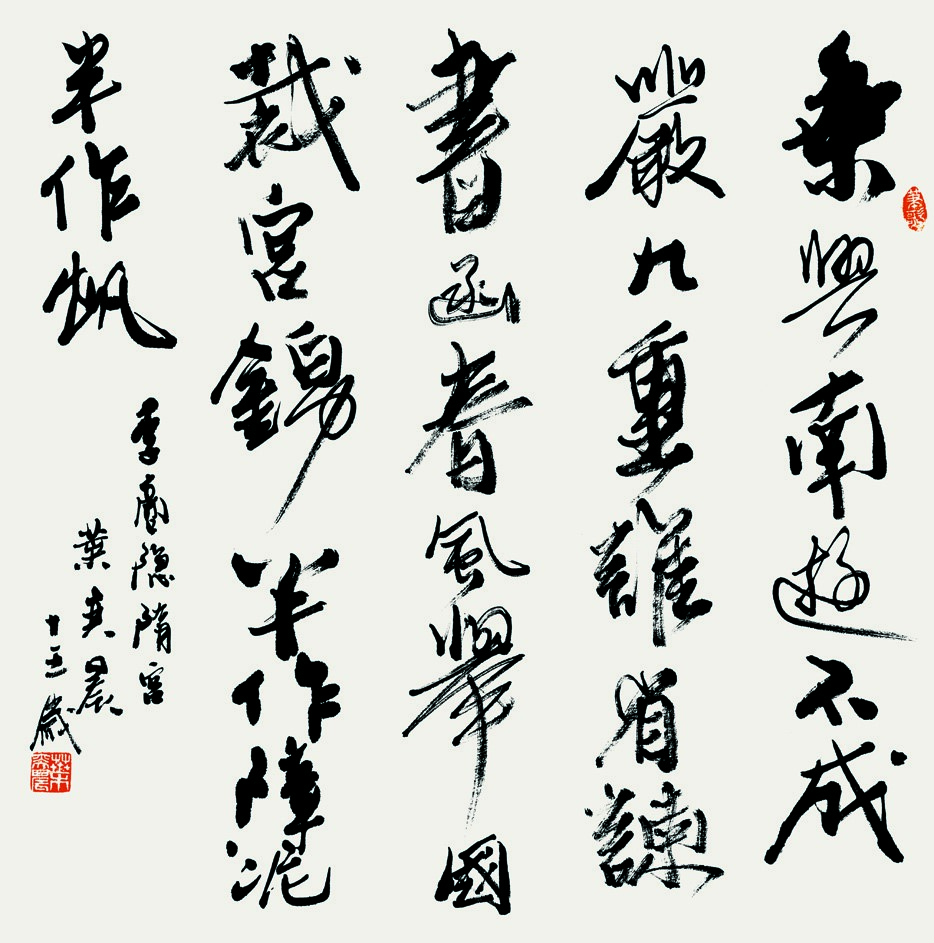 乘興南遊不戒
嚴九重誰省諫
書函春風舉國
裁宮錦半作障泥
半作帆
李商隐隋宮
葉奕晨
十五歲